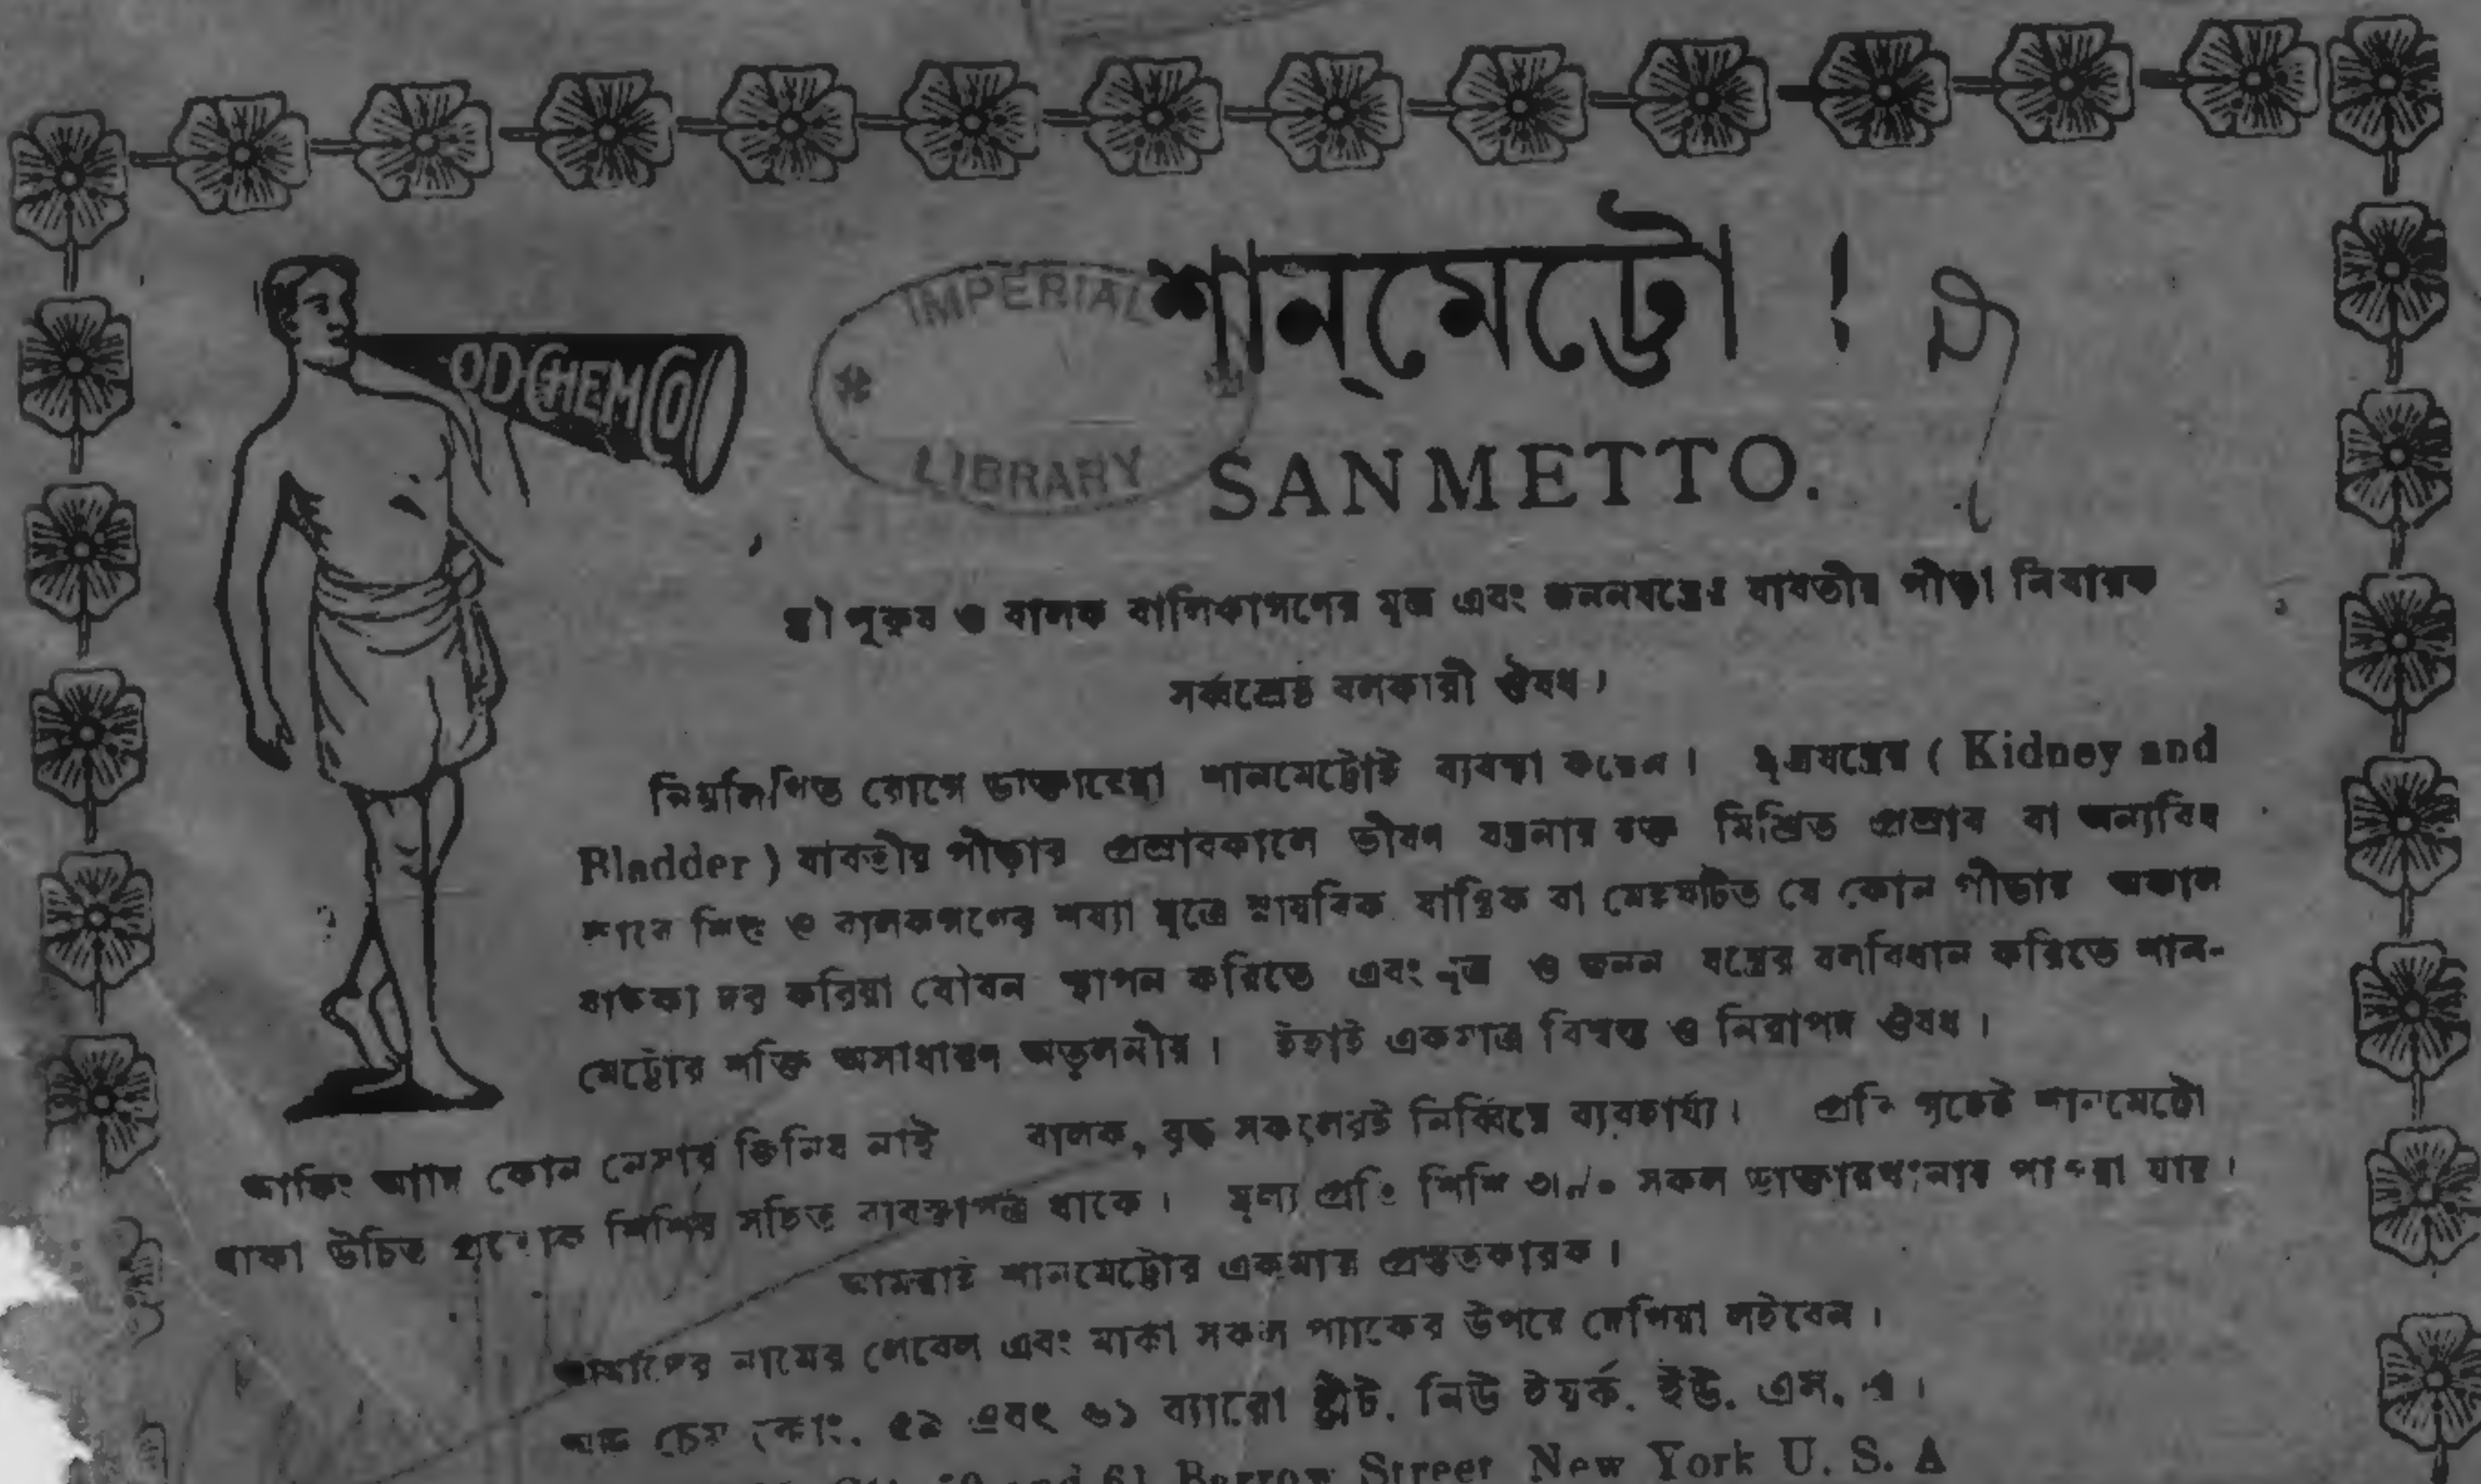 শান্‌মেট্টো !
IMPERIAL
LIBRARY
OD CHEM CO
SANMETTO.
স্ত্রী পুরুষ ও বালক বালিকাগণের মূত্র এবং জননযন্ত্রের যাবতীয় পীড়া নিবারক
সর্ব্বশ্রেষ্ঠ বলকারী ঔষধ।
নিম্নলিখিত রোগে ডাক্তারেরা শানমেট্টোই ব্যবস্থা করেন। মূত্রযন্ত্রের ( Kidney and
Bladder ) যাবতীয় পীড়ার প্রস্রাবকালে ভীষণ যন্ত্রনার রক্ত মিশ্রিত প্রস্রাব বা অন্যবিধ
শিশু ও বালকগণের শয্যা মূত্রে স্নায়বিক যান্ত্রিক বা মেহঘটিত যে কোন পীড়ায় অকাল
বার্দ্ধক্য দূর করিয়া যৌবন স্থাপন করিতে এবং মূত্র ও জনন যন্ত্রের বলবিধান করিতে শান-
মেট্টোর শক্তি অসাধারণ অতুলনীয়। ইহাই একমাত্র বিশ্বস্ত ও নিরাপদ ঔষধ।
আফিং আদি কোন নেসার জিনিষ নাই বালক, বৃদ্ধ সকলেরই নির্ব্বিঘ্নে ব্যবহার্য্য। প্রতি গৃহেই শানমেট্টো
থাকা উচিত প্রত্যেক শিশির সহিত ব্যবস্থাপত্র থাকে। মূল্য প্রতি শিশি ৩৷৵০ সকল ডাক্তারখানায় পাওয়া যায়।
আমরাই শানমেট্টোর একমাত্র প্রস্তুতকারক।
আমাদের নামের লেবেল এবং মার্কা সকল প্যাকের উপরে দেখিয়া লইবেন।
অড চেম কোং. ৫৯ এবং ৬১ ব্যারো ষ্ট্রীট. নিউ ইয়র্ক. ইউ. এস. এ।
and 61 Barrow Street New York U. S. A